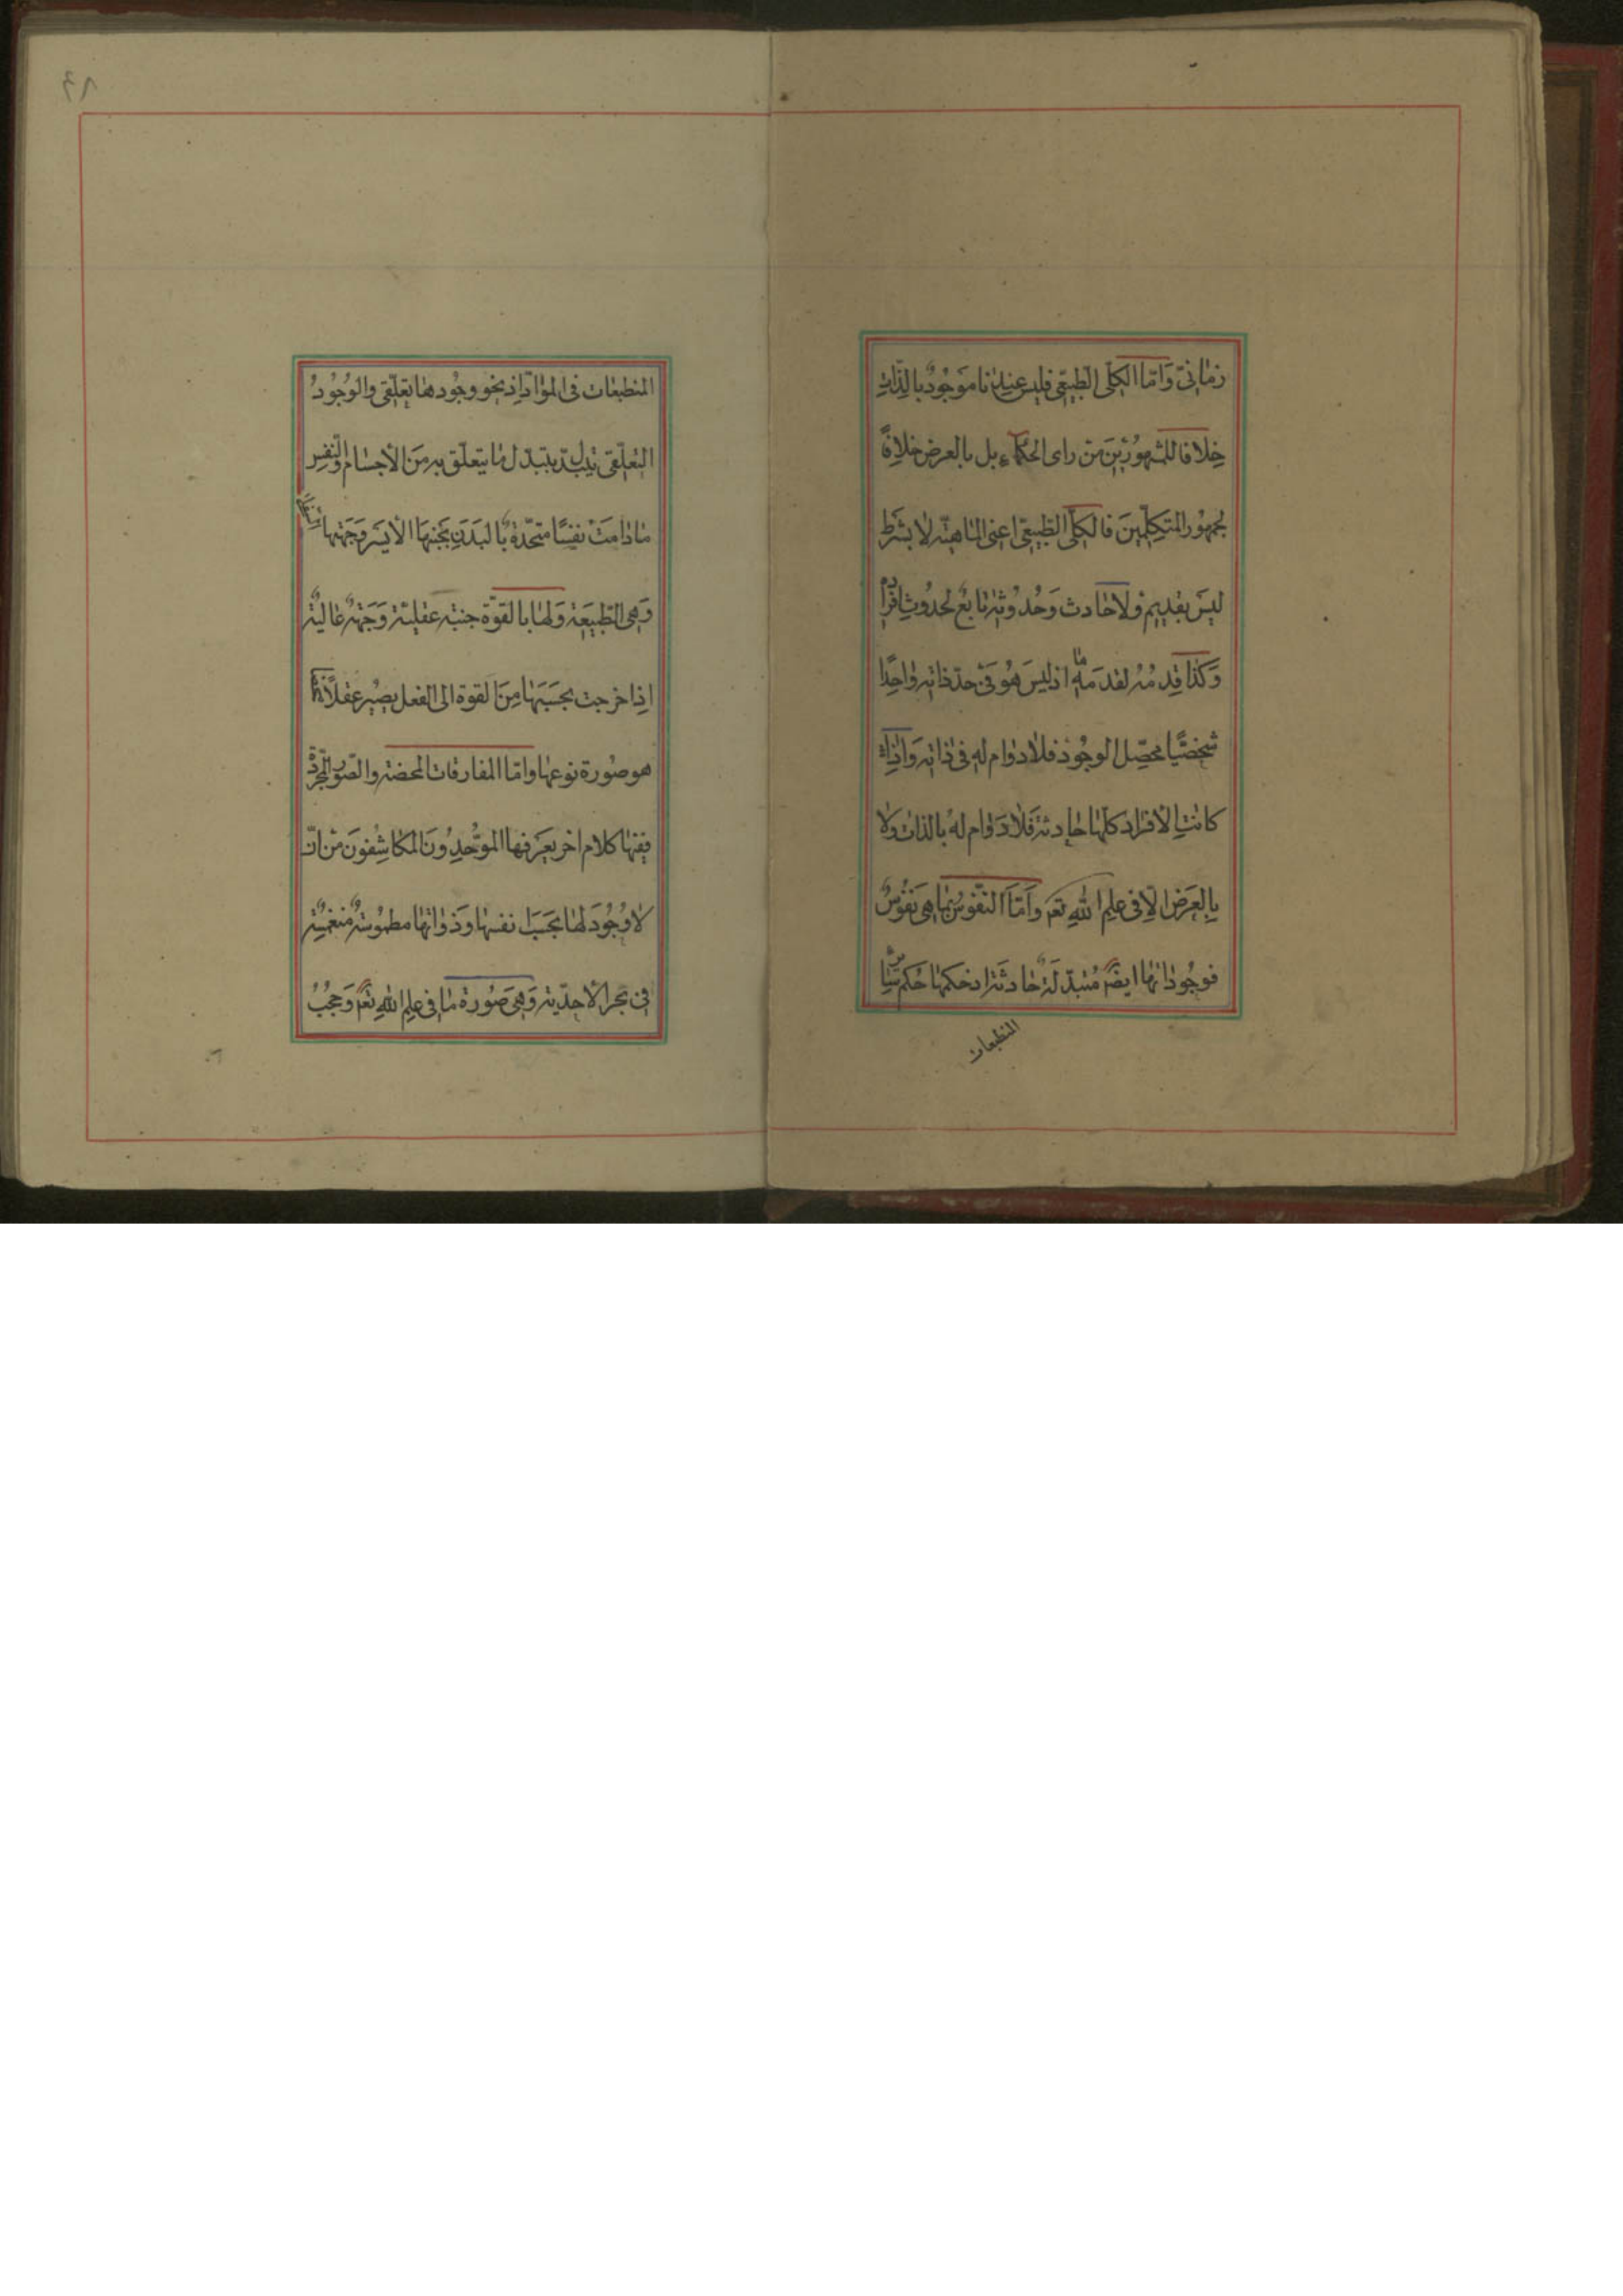 زمانىّ وَامّا الكلّى الطّبيعى فليس عندنا موجُودٌ بالذّاتِ
خِلافا للمشهُورِ مِنَ راى الحكماءِ بل بالعرض خلافًا
لجمهُور المتكلّمينَ فالكلّى الطّبيعى اعنى الماهيّة لا بشرط
ليسَ بقديم ولا حادث وَحُدوُثه تابعٌ لحدوُثِ افراده
وَكذا قِدمُه لقدمها اذ ليسَ هُو فى حدّ ذاته واحِدًا
شخصيًّا محصّل الوجُود فلا دوام له فى ذاته وَاذا
كانتِ الأفراد كلّها حادثة فَلا دَوام لهُ بالذات ولا
بِالعَرَض الّا فى علمِ اللهِ تعَ وَامّا النفُوسُ بما هى نفُوسٌ
فوجُوداتها ايضً مُتبدّلَةٌ حادثَة اذ حكمها حُكم سَاير
المنطبعات
المنطبعات فى الموادّ اِذ نحو وجُودها تعلّقى والوجُودُ
التعلّقى يتبدّل بتبدّل ما يتعلّق به مِنَ الأجسام والنّفس
مادامَتْ نفسًا متّحدة بالبَدَنِ بجَنبهَا الأيسَر وَجَهتها السّافلة
وَهِى الطّبيعَة وَلها بالقوّة جنبة عقليّة وَجَهةٌ عالية
اِذا خرجت بحَسَبها مِنَ القوة الى الفعل يصير عقلًا
هو صُورة نوعها وامّا المفارقات المحضة والصّور المجرّدة
ففيها كلام اخر يعَرفها الموُحّدِوُنَ المكاشِفونَ مِن انّ
لا وُجُودَ لها بحَسَب انفسها وَذواتها مطمُوسَةٌ منغمسة
فى بحر الاحديّة وَهىَ صُورة ما فى علمِ اللهِ تعَ وَحجُبُ